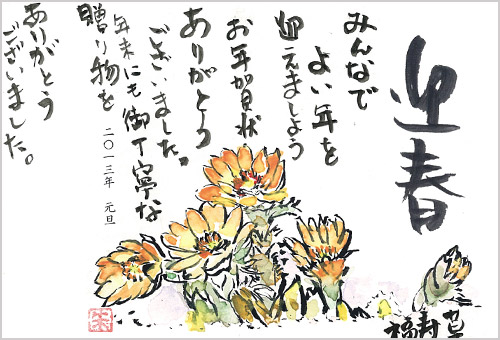 迎春
みんなで
よい年を
迎えましょう
お年賀状
ありがとう
ございました。
年末にも御丁寧な
贈り物を
ありがとう
ございました。
二〇一三年 元旦
福寿草